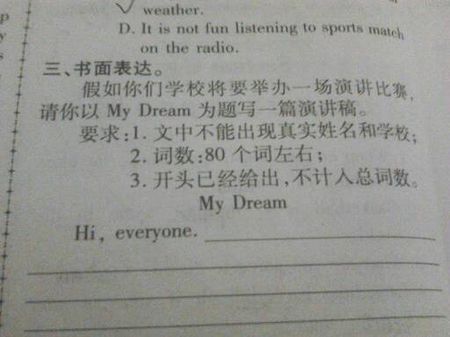 weather.
D. It is not fun listening to sports match
on the radio.
三、书面表达。
假如你们学校将要举办一场演讲比赛,
请你以 My Dream 为题写一篇演讲稿。
要求:1. 文中不能出现真实姓名和学校;
2. 词数:80 个词左右;
3. 开头已经给出,不计入总词数。
My Dream
Hi, everyone.